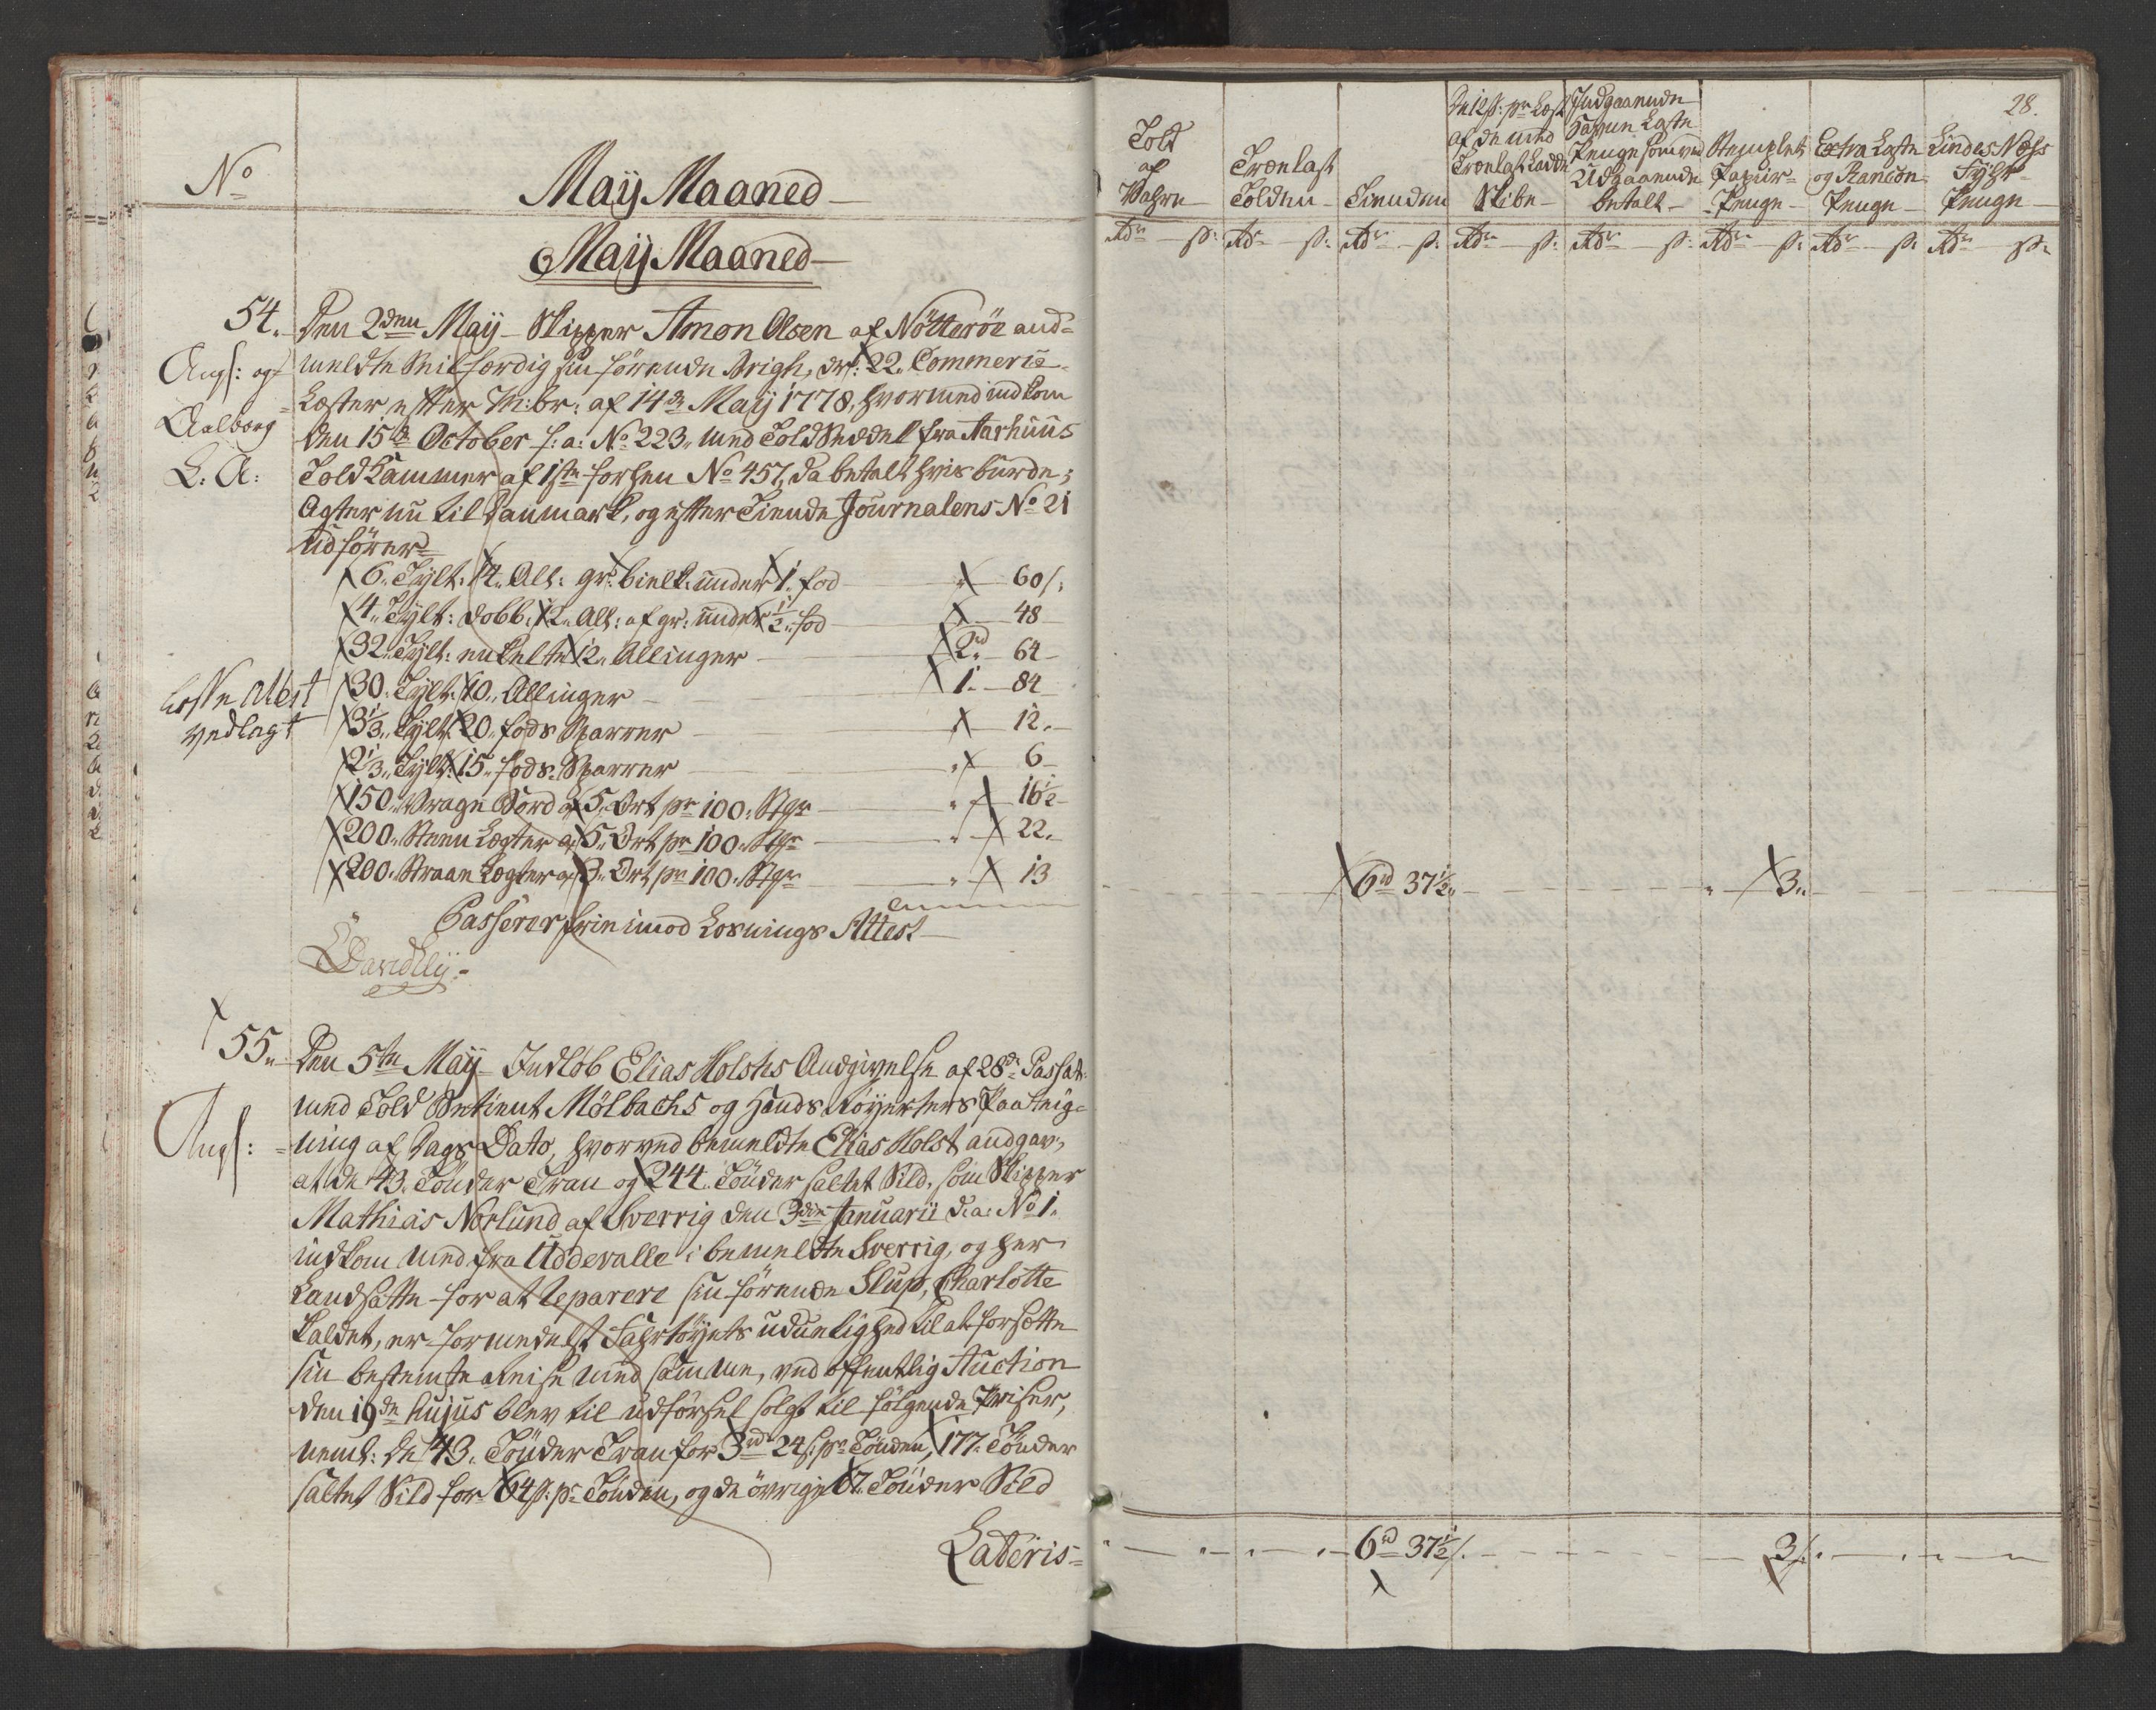 No
May Maaned
May Maaned
54. Den 2den May Skipper Amon Olsen af Nötteröe and=
Angf: og meldte Seilfærdig sin förende Brigh, dr: 22 Commerce
Aalborg Læster efter M:br: af 14de May 1778, hvormed indkom
den 15de October f: a: No 223, med Told Seddel fra Aarhuus
L: A: Toldkammer af 1ste forhen No 457, da betalt hvis burde;
Agter nu til Danmark, og efter Tiende Journalens No 21
udförer
6 Tylt: 14 All: gr: bielk: under 1 fod " 60 s:
4 Tylt: dobb: 12 All: af gr: under 1/2 fod " 48
32 Tylt: enkelte 12 Allinger 2rd 64
30 Tylt: 10 Allinger 1 84
3 1/3 Tylt: 20 fods Sparrer " 12
2 1/3 Tylt: 15 fods Sparrer " 6
150 Vrage Bord a 5 Ort pr 100 Stkr " 16 1/2
200 Steen Lægter a 5 Ort pr 100 Stkr " 22
200 Straae Lægter a 3 Ort pr 100 Stkr " 13
Losse Attest
vedlagt
Passerer frie imod Losnings Attest
55. Den 5te May Indlöb Elias Holstes Andgivelse af 28de Passato
med Told Betient Mölbachs og Hands Röyerters Paateig=
Angf: ning af Dags Dato, hvorved bemeldte Elias Holst andgav,
at de 43 Tönder Tran og 244 Tönder saltet Sild, som Skipper
Mathias Norlund af Sverrig den 3die Januarii d: a: No 1
indkom med fra Uddevalle i bemeldte Sverrig, og her
Landsatte for at Reparere sin förende Slup, Charlotte
kaldet, er formedelst Fahrtöyets uduelighed til at forsætte
sin bestemte Reise med samme, ved offentlig Auction
den 19de hujus blev til udförsel solgt til fölgende Priser,
neml: de 43 Tönder Tran for 3rd 24 s: pr Tönden, 177 Tönder
saltet Sild for 64 s: pr Tönden, og de övrige 67 Tönder Sild
Lateris
28.
Told
af
Wahre
Trælast
Tolden
Tienden
De 12 s: pr Læst
af de med
Trælast Ladde
Skibe
Indgaaende
Havne Laste
Penge som ved
Udgaaende
betalt
Stemplet
Papiir
Penge
Extra Laste
og Rancon
Penge
Lindes Næss
Fyhr
Penge
Rdr s: Rdr s: Rdr s: Rdr s: Rdr s: Rdr s: Rdr s: Rdr s:
6rd 37 1/2 " 3
6rd 37 1/2 s. 3 s.